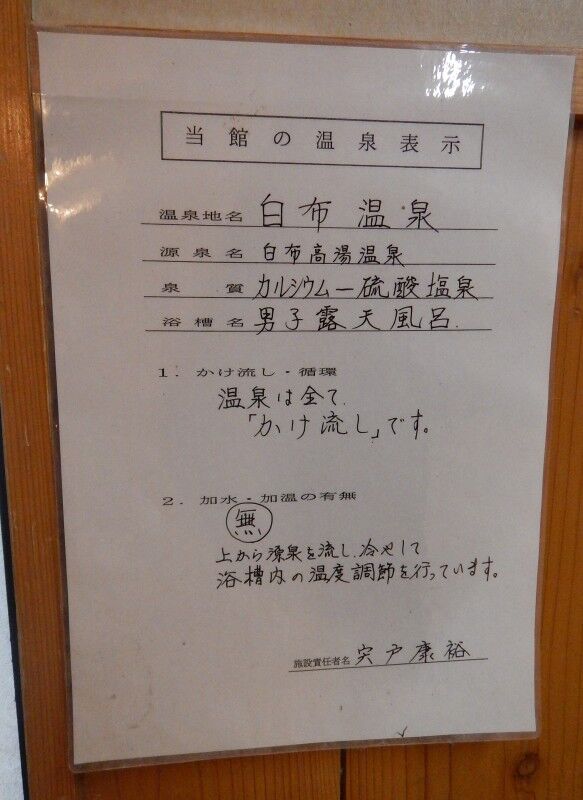 当館の温泉表示
温泉地名 白布温泉
源泉名 白布高湯温泉
泉質 カルシウムー硫酸塩泉
浴槽名 男子露天風呂.
1. かけ流し・循環
温泉は全て.
「かけ流し」です。
2. 加水・加温の有無
無
上から源泉を流し、冷やして
浴槽内の温度調節を行っています。
施設責任者名 宍戸康裕